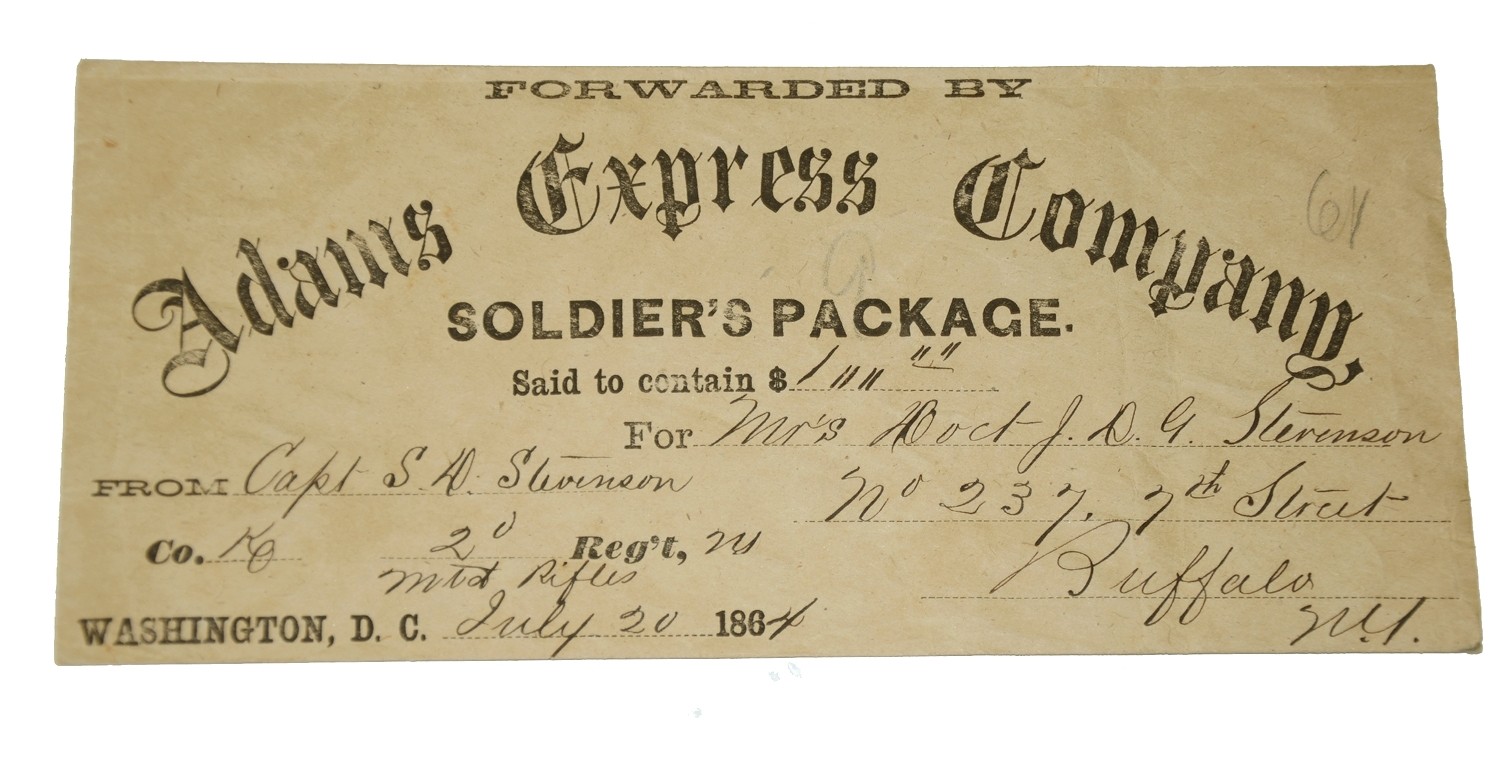 FORWARDED BY
Adams Express Company,
SOLDIER'S PACKAGE.
Said to contain $ 100 00
For Mrs Doct J. D. G. Stevenson
FROM Capt S. D. Stevenson
No 237. 7th Street
Co. K 2d Reg't, NY
Buffalo
Mtd Rifles
WASHINGTON, D. C. July 20 1864
N.Y.